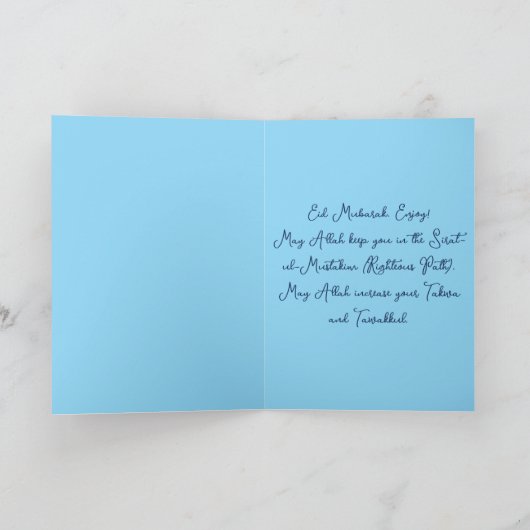 Eid Mubarak. Enjoy!
May Allah keep you in the Sirat-
ul-Mustakim (Righteous Path).
May Allah increase your Takwa
and Tawakkul.